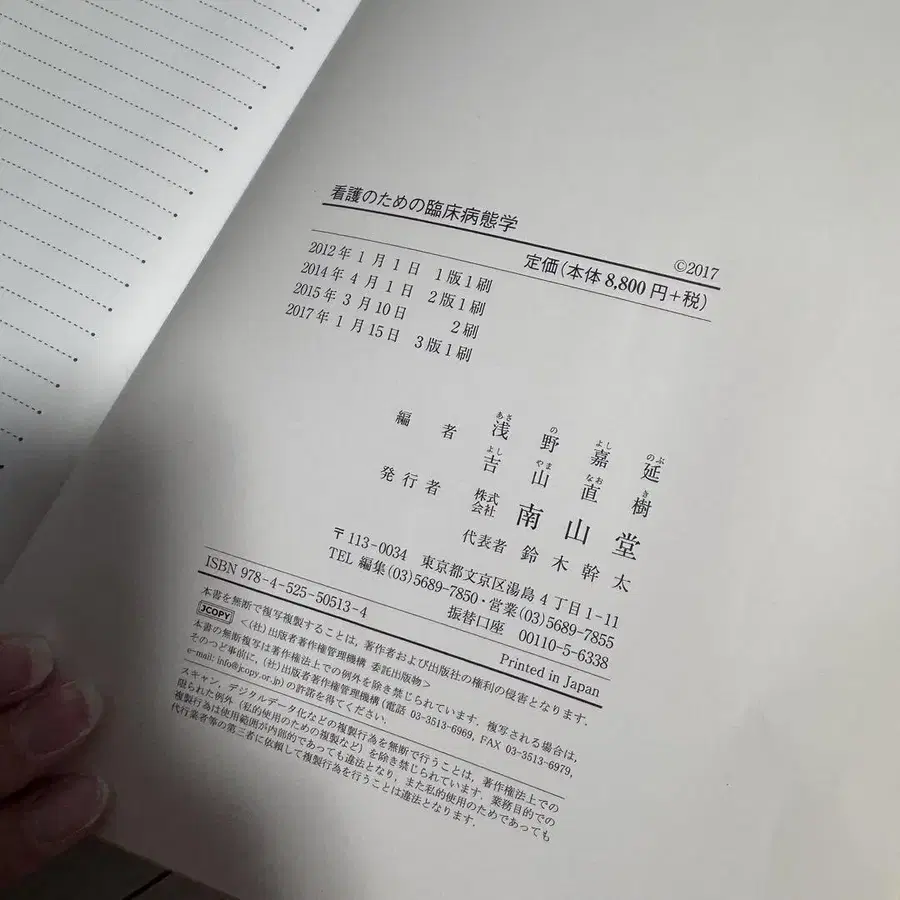 看護のための臨床病態学
©2017
2012年 1月 1日 1版1刷
定価(本体 8,800円+税)
2014年 4月 1日 2版1刷
2015年 3月10日 2刷
2017年 1月15日 3版1刷
編者 浅野嘉延
あさ の よし のぶ
吉山直樹
よし やま なお き
発行者 株式会社 南山堂
代表者 鈴木幹太
〒113-0034 東京都文京区湯島4丁目1-11
TEL 編集(03)5689-7850・営業(03)5689-7855
振替口座 00110-5-6338
ISBN 978-4-525-50513-4
Printed in Japan
本書を無断で複写複製することは,著作者および出版社の権利の侵害となります.
JCOPY <(社)出版者著作権管理機構 委託出版物>
本書の無断複写は著作権法上での例外を除き禁じられています.複写される場合は,
そのつど事前に,(社)出版者著作権管理機構(電話 03-3513-6969, FAX 03-3513-6979,
e-mail: info@jcopy.or.jp)の許諾を得てください.
スキャン,デジタルデータ化などの複製行為を無断で行うことは,著作権法上での
限られた例外(私的使用のための複製など)を除き禁じられています.業務目的での
複製行為は使用範囲が内部的であっても違法となり,また私的使用のためであっても
代行業者等の第三者に依頼して複製行為を行うことは違法となります.